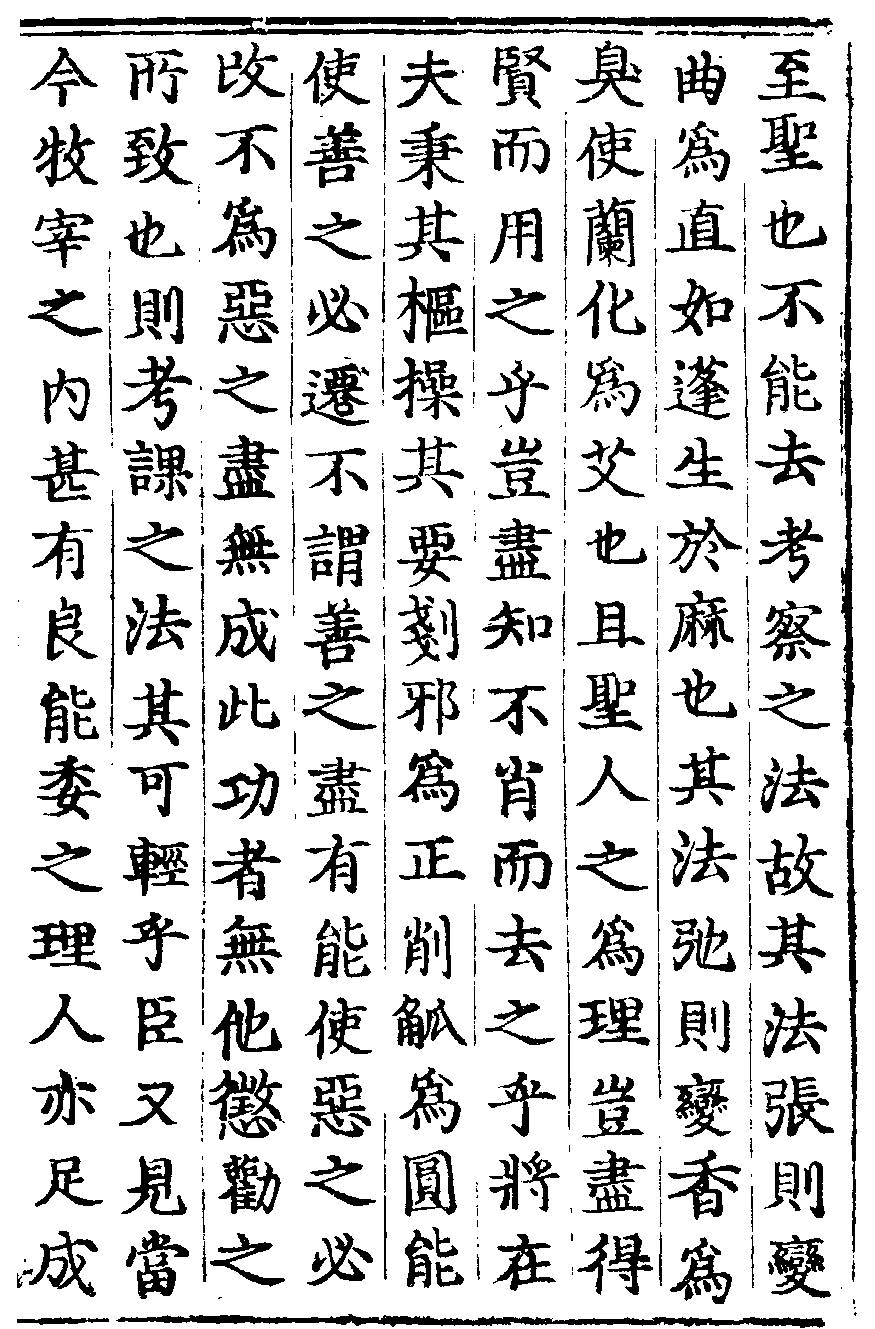 至聖也不能去考察之法故其法張則變
曲爲直如蓬生於麻也其法弛則變香爲
臭使蘭化爲艾也且聖人之爲理豈盡得
賢而用之乎豈盡知不肖而去之乎將在
夫秉其樞操其要剗邪爲正削觚爲圓能
使善之必遷不謂善之盡有能使惡之必
改不爲惡之盡無成此功者無他懲勸之
所致也則考課之法其可輕乎臣又見當
今牧宰之内甚有良能委之理人亦足成